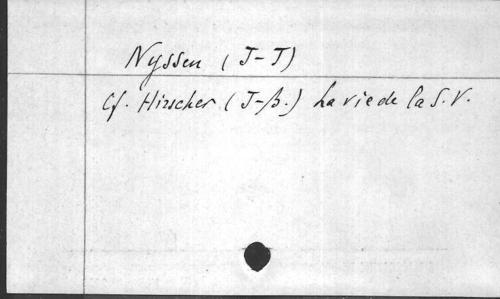 Nyssen (J-J)
Cf. Hirscher (J-B.) La vie de la S.V.